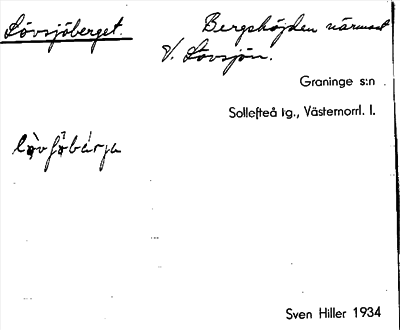 Lövsjöberget.
Bergshöjden närmast
V. Lövsjön.
Graninge s:n
Sollefteå tg., Västernorrl. l.
Sven Hiller 1934